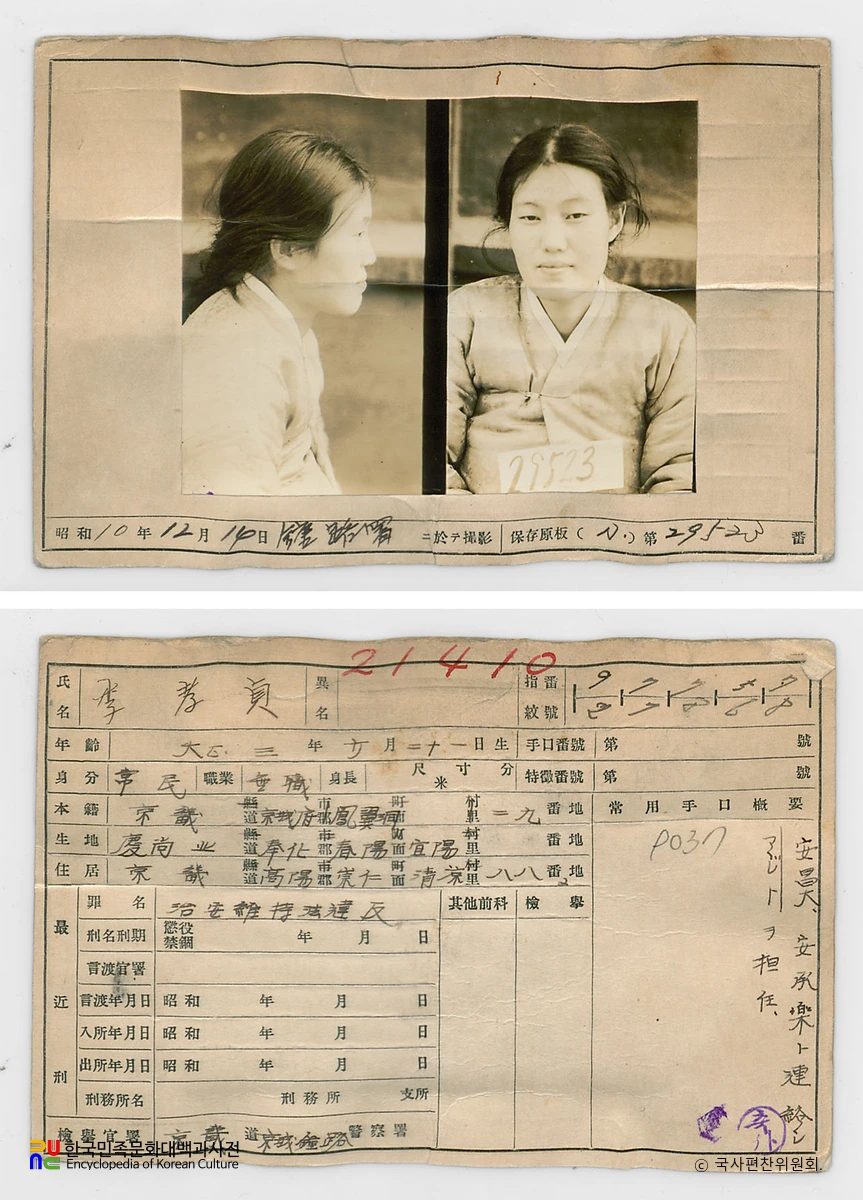 29523
昭和10年12月14日 鍾路署 ニ於テ撮影 保存原板(N.)第29523番
21410
氏名 李孝貞 異名 指紋番號
年齡 大正 三年 六月二十一日生 手口番號 第 號
身分 常民 職業 無職 身長 尺寸分 米 特徵番號 第 號
本籍 京畿 縣道 京城府 市郡 鳳翼洞 町面 村里 二九 番地 常用手口槪要
生地 慶尚北 縣道 奉化 市郡 春陽 町面 宜陽 村里 番地
住居 京畿 縣道 高陽 市郡 崇仁 町面 清凉 村里 八八 番地
P037
安承樂ト連絡シ
アヂトヲ担任、
最近刑
罪名 治安維持法違反 其他前科 檢擧
刑名刑期 懲役 禁錮 年 月 日
言渡官署
言渡年月日 昭和 年 月 日
入所年月日 昭和 年 月 日
出所年月日 昭和 年 月 日
刑務所名 刑務所 支所
檢擧官署 京畿 道 京城鍾路 警察署
한국민족문화대백과사전
Encyclopedia of Korean Culture
© 국사편찬위원회